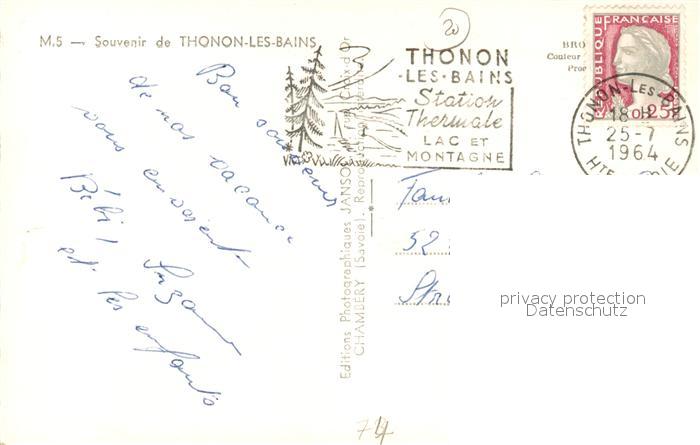 M.5 — Souvenir de THONON-LES-BAINS
Bon souvenir
de nos vacances
vous envoient
Bébé,
et les enfants
Editions Photographiques JANSOL
CHAMBÉRY (Savoie).
20
THONON
-LES-BAINS
Station
Thermale
LAC ET
MONTAGNE
BRO
Couleur
Proc
REPUBLIQUE FRANÇAISE
0,25
THONON-LES-BAINS
18 H
25-7
1964
HTE
Fam
52
Str
privacy protection
Datenschutz
74